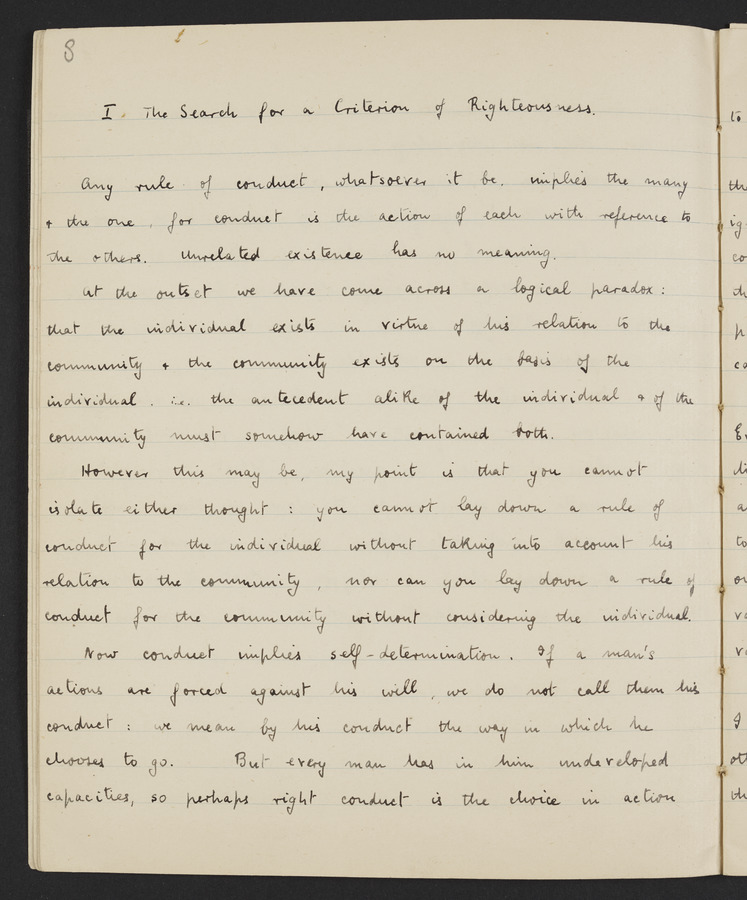 8
I. The Search for a Criterion of Righteousness.
Any rule of conduct, whatsoever it be, implies the many
+ the one, for conduct is the action of each with reference to
the others. Unrelated existence has no meaning.
At the outset we have come across a logical paradox:
that the individual exists in virtue of his relation to the
community + the community exists on the basis of the
individual. i.e. the antecedent alike of the individual + of the
community must somehow have contained both.
However this may be, my point is that you cannot
isolate either thought: you cannot lay down a rule of
conduct for the individual without taking into account his
relation to the community, nor can you lay down a rule of
conduct for the community without considering the individual.
Now conduct implies self-determination. If a man's
actions are forced against his will, we do not call them his
conduct: we mean by his conduct the way in which he
chooses to go. But every man has in him undeveloped
capacities, so perhaps right conduct is the choice in action